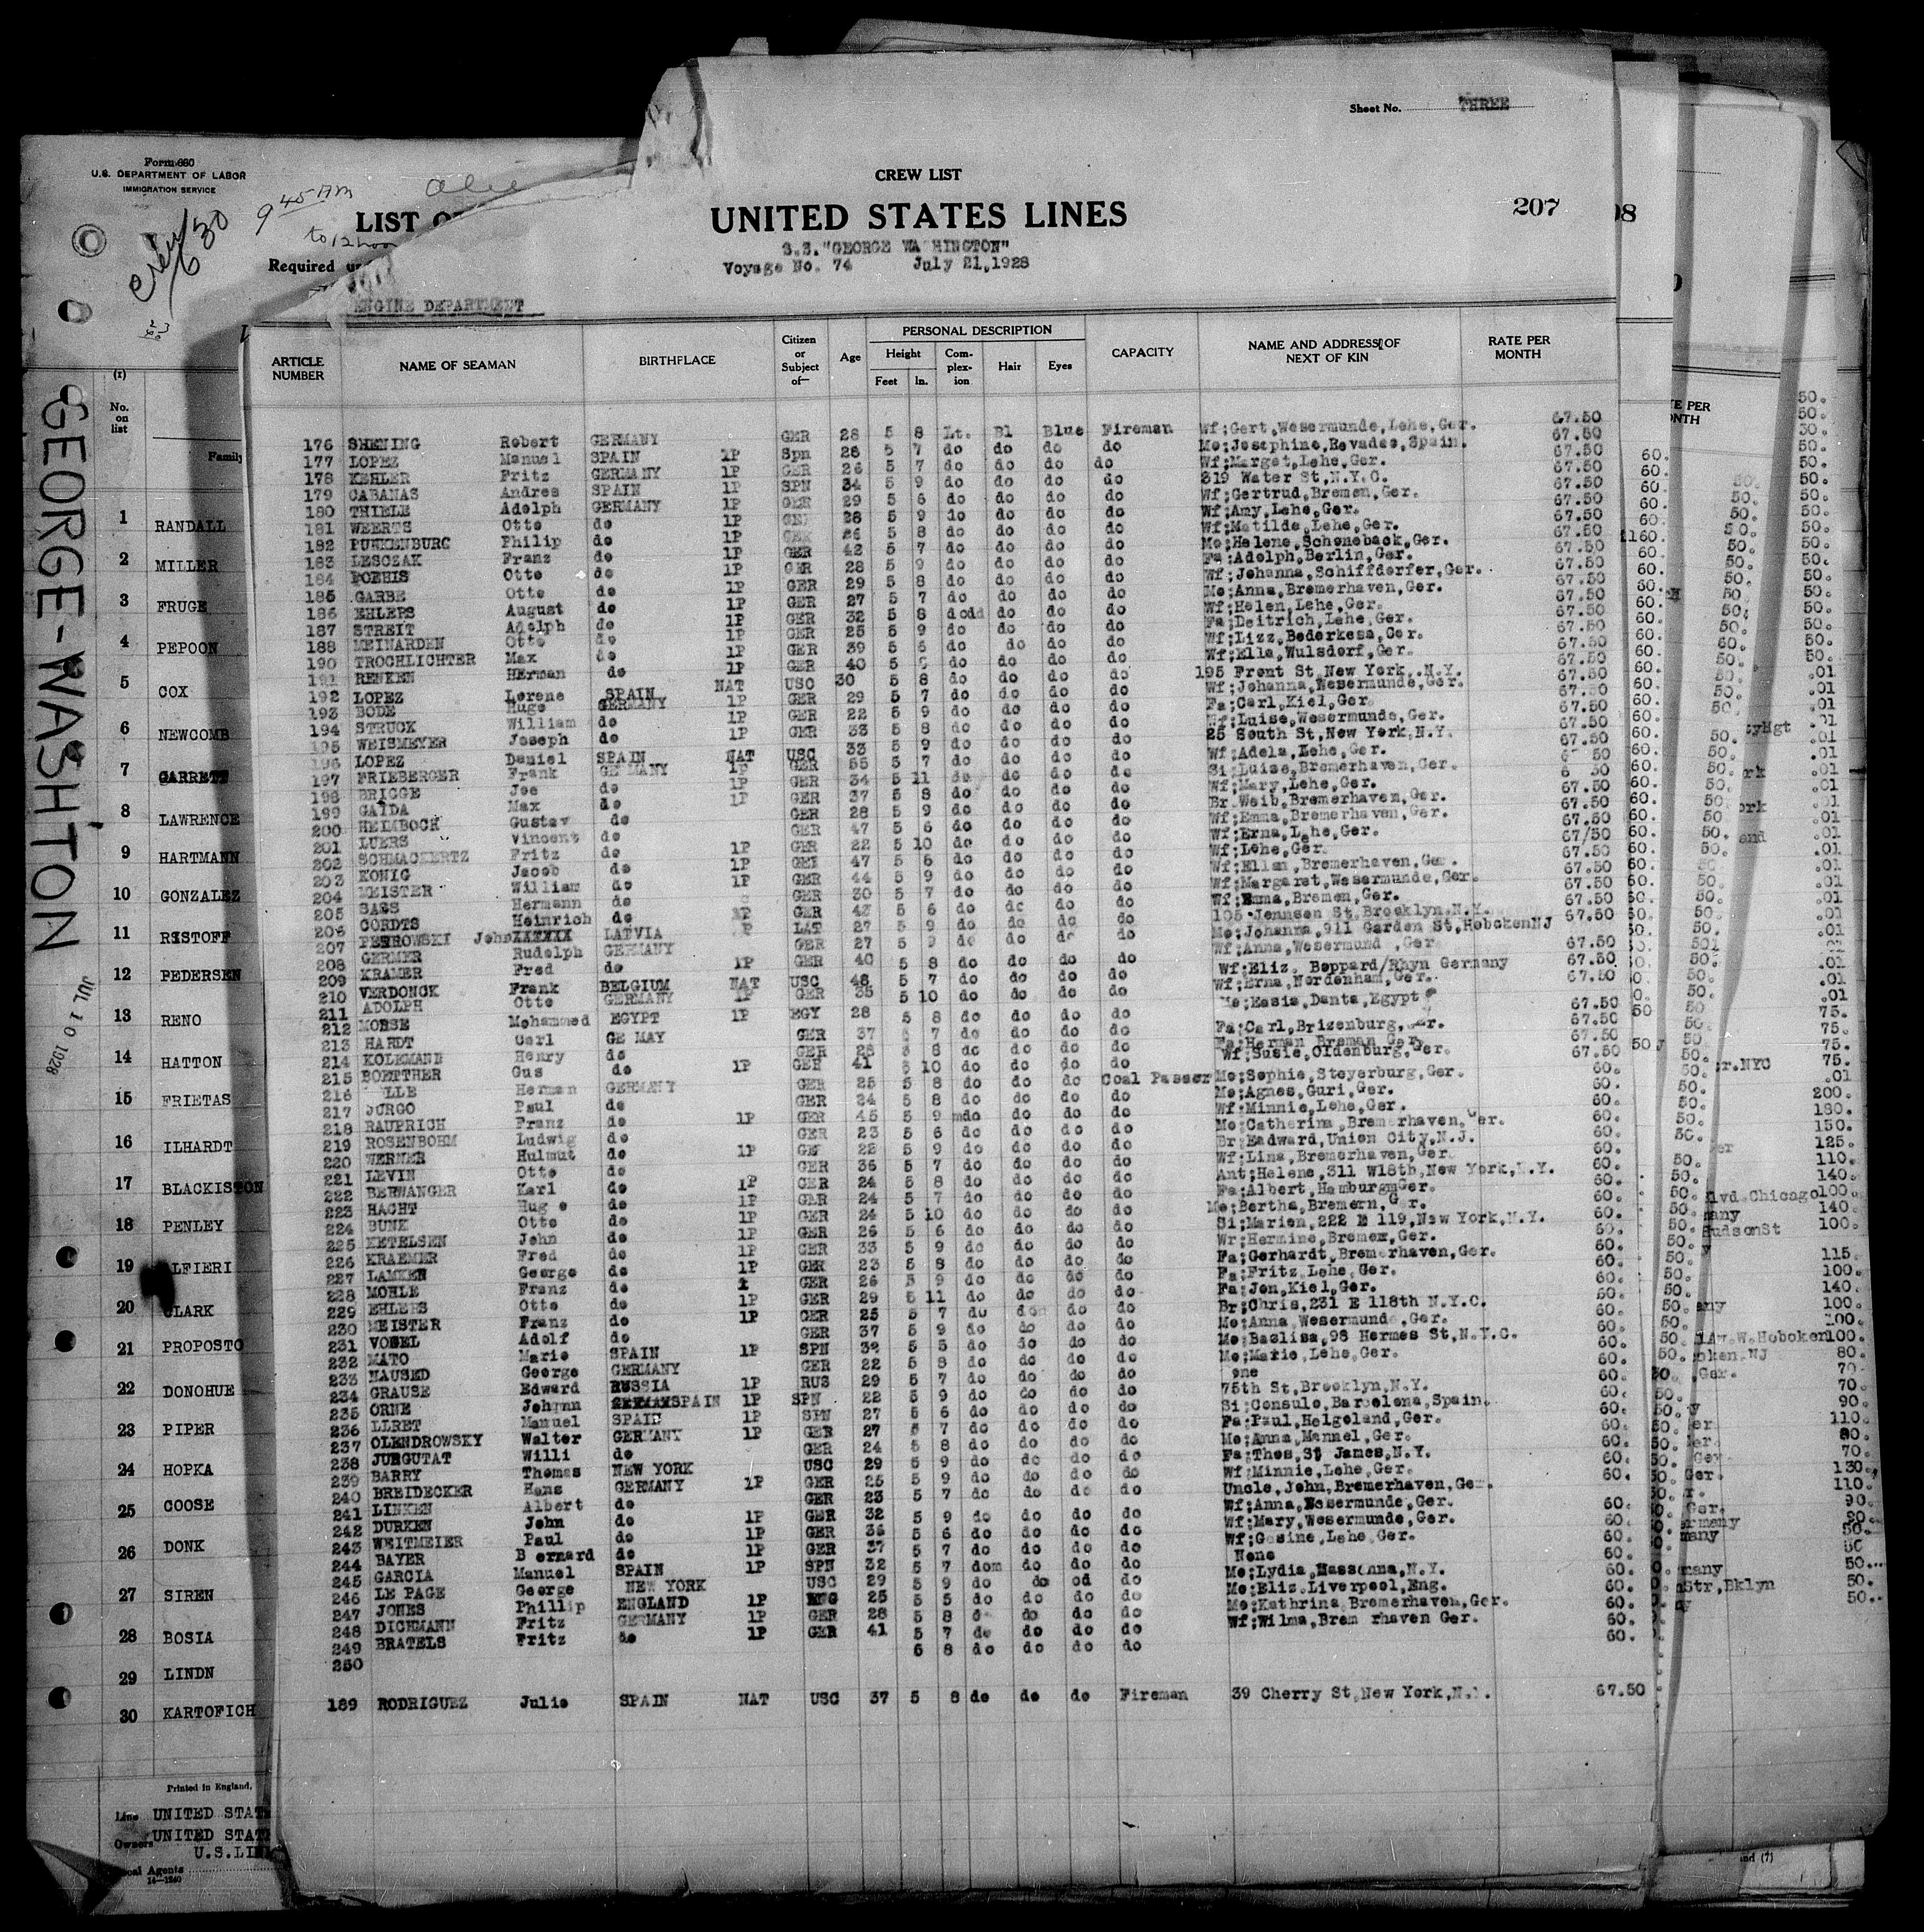 Sheet No. THREE
Form 680
U.S. DEPARTMENT OF LABOR
IMMIGRATION SERVICE
9 45 AM
to 12 noon
Crew 630
LIST O
Required
CREW LIST
UNITED STATES LINES
207
S.S. "GEORGE WA HINGTON"
Voyage No. 74 July 21,1928
ENGINE DEPARTMENT
ARTICLE NUMBER NAME OF SEAMAN BIRTHPLACE Citizen or Subject of— Age PERSONAL DESCRIPTION CAPACITY NAME AND ADDRESS OF NEXT OF KIN RATE PER MONTH
Height Feet In. Complexion Hair Eyes
176 SHENING Robert GERMANY GER 28 5 8 Lt. Bl Blue Fireman Wf;Gert,Wesermunde,Lehe,Ger. 67.50
177 LOPEZ Manuel SPAIN 1P Spn 28 5 7 do do do do Mo;Josephine,Revades,Spain. 67.50
178 KEHLER Fritz GERMANY 1P GER 26 5 7 do do do do Wf;Marget,Lehe,Ger. 67.50
179 CABANAS Andres SPAIN 1P SPN 34 5 9 do do do do 319 Water St,N.Y.C. 67.50
180 THIELE Adolph GERMANY 1P GER 29 5 6 do do do do Wf;Gertrud,Bremen,Ger. 67.50
181 WEERTS Otto do 1P 28 5 9 do do do do Wf;Amy,Lehe,Ger. 67.50
182 PUNKENBURG Philip do 1P 26 5 8 do do do do Wf;Matilde,Lehe,Ger. 67.50
183 LESCZAK Franz do 1P GER 42 5 7 do do do do Mo;Helene,Schoneback,Ger. 67.50
184 POEHIS Otto do 1P GER 28 5 9 do do do do Fa;Adolph,Berlin,Ger. 67.50
185 GARBE Otto do 1P GER 29 5 8 do do do do Wf;Johanna,Schiffdorfer,Ger. 67.50
186 EHLERS August do 1P GER 27 5 7 do do do do Mo;Anna,Bremerhaven,Ger. 67.50
187 STREIT Adolph do 1P GER 32 5 8 dodd do do do Wf;Helen,Lehe,Ger. 67.50
188 MEINARDEN Otto do 1P GER 25 5 9 do do do do Fa;Deitrich,Lehe,Ger. 67.50
190 TROCHLICHTER Max do 1P GER 39 5 6 do do do do Wf;Lizz,Bederkesa,Ger. 67.50
191 RENKEN HErman do 1P GER 40 5 do do do do Wf;Ella,Wulsdorf,Ger. 67.50
192 LOPEZ Lorene SPAIN NAT USC 30 5 8 do do do do 195 Front St,New York,N.Y. 67.50
193 BODE Hugo GERMANY 1P GER 29 5 7 do do do do Wf;Johanna,Wesermunde,Ger. 67.50
194 STRUCK William do 1P GER 22 5 9 do do do do Fa;Carl,Kiel,Ger. 67.50
195 WEISMEYER Joseph do 1P GER 33 5 8 do do do do Wf;Luise,Wesermunde,Ger. 67.50
196 LOPEZ Daniel SPAIN NAT USC 33 5 9 do do do do 25 South St,New York,N.Y. 67.50
197 FRIEBERGER Frank GE MANY 1P GER 55 5 7 do do do do Wf;Adela,Lehe,Ger.
198 BRIGGE Joe do 1P GER 34 5 11 do do do do Si;Luise,Bremerhaven,Ger.
199 GAIDA Max do 1P GER 37 5 8 do do do do Wf;Mary,Lehe,Ger. 67.50
200 HEIMBOCH Gustav do GER 28 5 9 do do do do Br Weib,Bremerhaven,Ger. 67.50
201 LUERS Vincent do GER 47 5 6 do do do do Wf;Emma,Bremerhaven,Ger. 67.50
202 SCHMACKERTZ Fritz do 1P GER 22 5 10 do do do do Wf;Erna,Lehe,Ger. 67/50
203 KONIG Jacob do 1P GER 47 5 6 do do do do Wf;Lehe,Ger. 67.50
204 MEISTER William do 1P GER 44 5 9 do do do do Wf;Ellen,Bremerhaven,Ger. 67.50
205 SASS Hermann do GER 30 5 7 do do do do Wf;Margaret,Wesermunde,Ger. 67.50
206 CORDTS Heinrich do GER 43 5 6 do do do do Wf;Emma,Bremen,Ger. 67.50
207 PETROWSKI JohnXXXXXX LATVIA LAT 27 5 9 do do do do 105 Jennsen St,Brooklyn,N.Y. 67.50
208 GERMER Rudolph GERMANY GER 27 5 9 do do do do Mo;Johanna,911 Garden St,HobckenNJ
209 KRAMER Fred do 1P GER 40 5 8 do do do do Wf;Anna,Wesermund ,Ger 67.50
210 VERDONCK Frank BELGIUM NAT USC 48 5 7 do do do do Wf;Eliz. Boppard/Rhyn Germany 67.50
211 ADOLPH Otto GERMANY 1P GER 35 5 10 do do do do Wf;Erna,Nordenham,Ger. 67.50
212 MORSE Mohammed EGYPT 1P EGY 28 5 8 do do do do Mo;Easia,Danta,Egypt 67.50
213 HARDT Carl GE MAY GER 37 7 do do do do Fa;Carl,Brizenburg,Ger. 67.50
214 KOLEMANN Henry do GER 28 8 do do do do Fa;Herman Breman Ger. 67.50
215 BOETTHER Gus do 1P GER 41 10 do do do do Wf;Susie,Oldenburg,Ger. 67.50
216 LLE Herman GERMANY GER 25 5 8 do do do Coal Passer Mo;Sophie,Steyerburg,Ger. 60.
217 JURGO Paul do GER 24 5 8 do do do do Mo;Agnes,Guri,Ger. 60.
218 RAUPRICH Franz do 1P GER 45 5 9 mdo do do do Wf;Minnie,Lehe,Ger. 60.
219 ROSENBOHM Ludwig do GER 23 5 6 do do do do Mo;Catherina,Bremerhaven,Ger. 60.
220 WERNER Hulmut do 1P GE 22 5 9 do do do do Br;Eadward,Union City,N.J. 60.
221 LEVIN Otto do GER 36 5 7 do do do do Wf;Lina,Bremerhaven,Ger. 60.
222 BERWANGER Karl do 1P GER 24 5 8 do do do do Ant;Helene,311 W18th,New York,N.Y. 60.
223 HACHT Hug o do 1P GER 24 5 7 do do do do Fa;Albert,HamburgmGer. 60.
224 BUNK Otto do 1P GER 24 5 10 do do do do Mo;Bertha,Bremern,Ger. 60.
225 KETELSEN John do 1P GER 26 5 6 do do do do Si;Marien,222 E 119,New York,N.Y. 60.
226 KRAEMER Fred do 1P GER 33 5 9 do do do do Wr;Hermine,Bremen,Ger. 60.
227 LAMKEN George do 1P GER 23 5 8 do do do do Fa;Gerhardt,Bremerhaven,Ger. 60.
228 MOHLE Franz do GER 26 5 9 do do do do Fa;Fritz,Lehe,Ger. 60.
229 EHLERS Otto do 1P GER 29 5 11 do do do do Fa;Jon,Kiel,Ger. 60.
230 MEISTER Franz do 1P GER 25 5 7 do do do do Br;Chris,231 E 118th N.Y.C. 60.
231 VOGEL Adolf do GER 37 5 9 do do do do Mo;Anna,Wesermunde,Ger. 60.
232 MATO Mario SPAIN 1P SPN 32 5 5 do do do do Mo;Baslisa,98 Hermes St,N.Y.C. 60.
233 HAUSED George GERMANY GER 22 5 8 do do do do Mo;Marie,Lehe,Ger. 60.
234 GRAUSE Edward RUSSIA 1P RUS 29 5 7 do do do do one 60.
235 ORNE Johgnn SPAIN 1P SPN 22 5 9 do do do do 75th St,Brooklyn,N.Y. 60.
236 LLRET Manuel SPAIC 1P SPN 27 5 6 do do do do Si;Consulo,Barcelona,Spain. 60.
237 OLENDROWSKY Walter GERMANY 1P GER 27 5 7 do do do do Fa;Paul,Helgoland,Ger. 60.
238 JURGUTAT Willi do GER 24 5 8 do do do do Mo;Anna,Mannel,Ger. 60.
239 BARRY Thomas NEW YORK USC 29 5 9 do do do do Fa;Thos,St James,N.Y. 60.
240 BREIDECKER Hans GERMANY 1P GER 25 5 9 do do do do Wf;Minnie,Lehe,Ger. 60.
241 LINKEN Albert do GER 23 5 7 do do do do Uncle,John,Bremerhaven,Ger.
242 DURKEN John do 1P GER 32 5 9 do do do do Wf;Anna,Wesermunde,Ger. 60.
243 WEITMEIER Paul do 1P GER 36 5 6 do do do do Wf;Mary,Wesermunde,Ger. 60.
244 BAYER B ernard do 1P GER 37 5 7 do do do do Wf;Gesine,Lehe,Ger. 60.
245 GARCIA Manuel SPAIN 1P SPN 32 5 7 dom do do do None 60.
246 LE PAGE George NEW YORK USC 29 5 9 do do od do Mo;Lydia,Massonna,N.Y. 60.
247 JONES Phillip ENGLAND 1P ENG 25 5 5 do do do do Mo;Eliz.Liverpool,Eng. 60.
248 DICHMANN Fritz GERMANY 1P GER 28 5 8 do do do Mo;Kathrina,Bremerhaven,Ger. 60.
249 BRATELS Fritz do 1P GER 41 5 7 do do do do Wf;Wilma,Brem rhaven Ger. 60.
250 5 8 do do do do
189 RODRIGUEZ Julio SPAIN NAT USC 37 5 8 do do do Fireman 39 Cherry St,New York,N.Y. 67.50
GEORGE-WASHTON
JUL 10 1928
(1)
No. on list
Family
1 RANDALL
2 MILLER
3 FRUGE
4 PEPOON
5 COX
6 NEWCOMB
7 GARRETT
8 LAWRENCE
9 HARTMANN
10 GONZALEZ
11 RISTOFF
12 PEDERSEN
13 RENO
14 HATTON
15 FRIETAS
16 ILHARDT
17 BLACKISTON
18 PENLEY
19 ALFIERI
20 CLARK
21 PROPOSTO
22 DONOHUE
23 PIPER
24 HOPKA
25 COOSE
26 DONK
27 SIREN
28 BOSIA
29 LINDN
30 KARTOFICH
Printed in England.
Line UNITED STAT
Owners UNITED STAT
U.S.LIN
Local Agents
14—1240